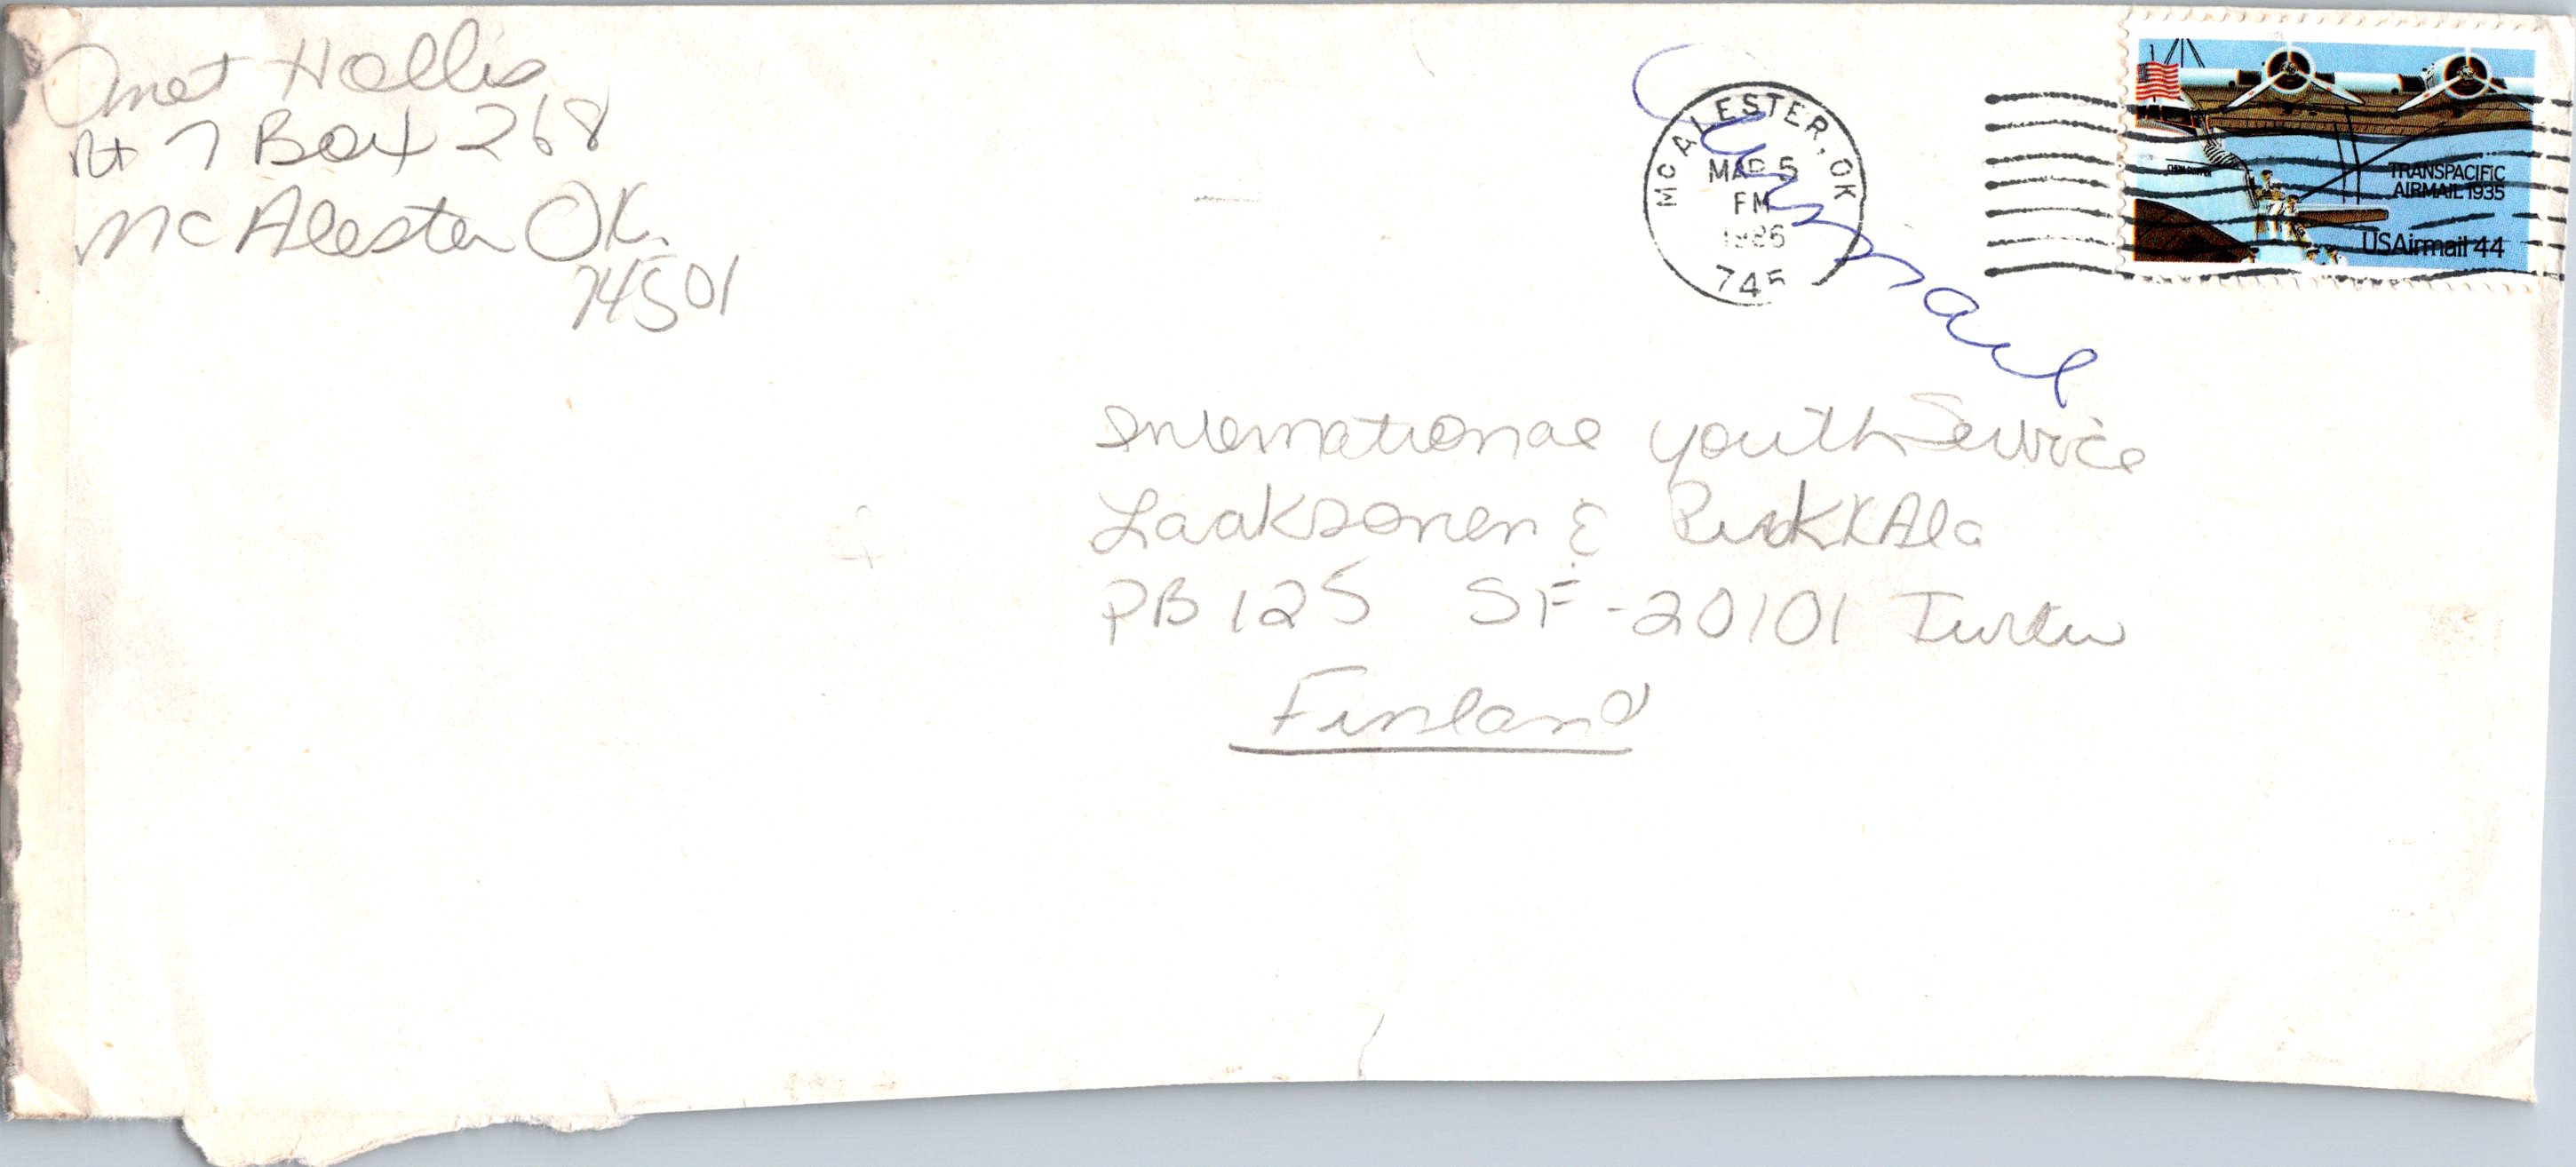 Hollis
Rt 7 Box 268
McAlester OK.
74501
MCALESTER, OK
MAR 5
PM
1986
745
Airmail
TRANSPACIFIC
AIRMAIL 1935
USAirmail 44
International Youth Service
Laaksonen &
PB 125 SF-20101 Turku
Finland